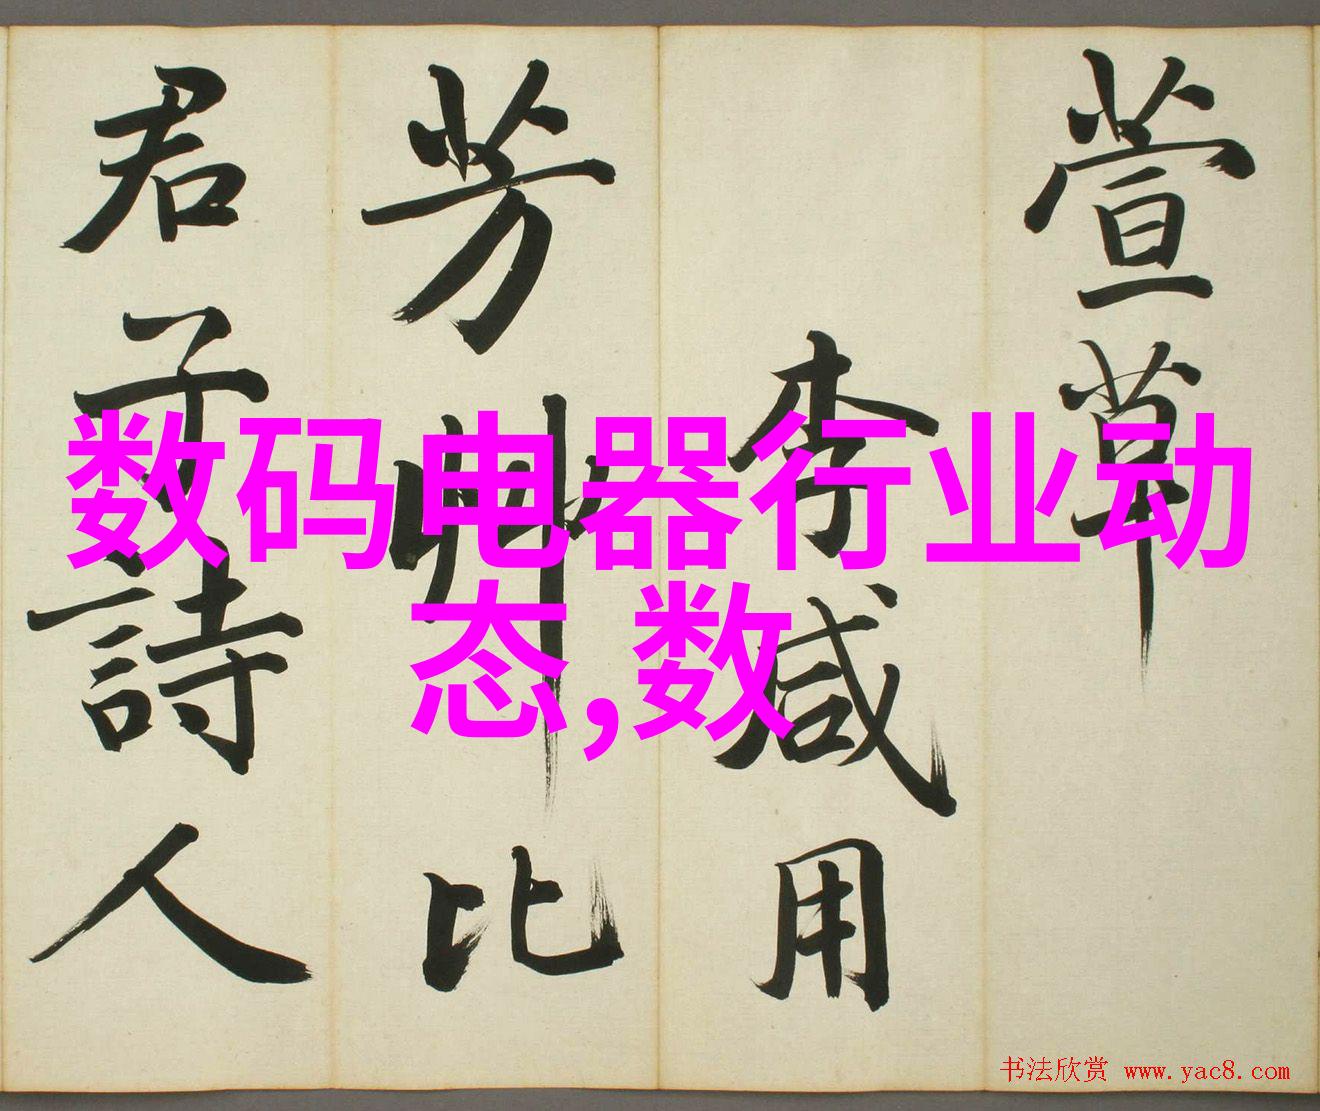 萱草
李咸用
芳艸比
君子詩人
数码电器行业动
态,数
书法欣赏 www.yac8.com